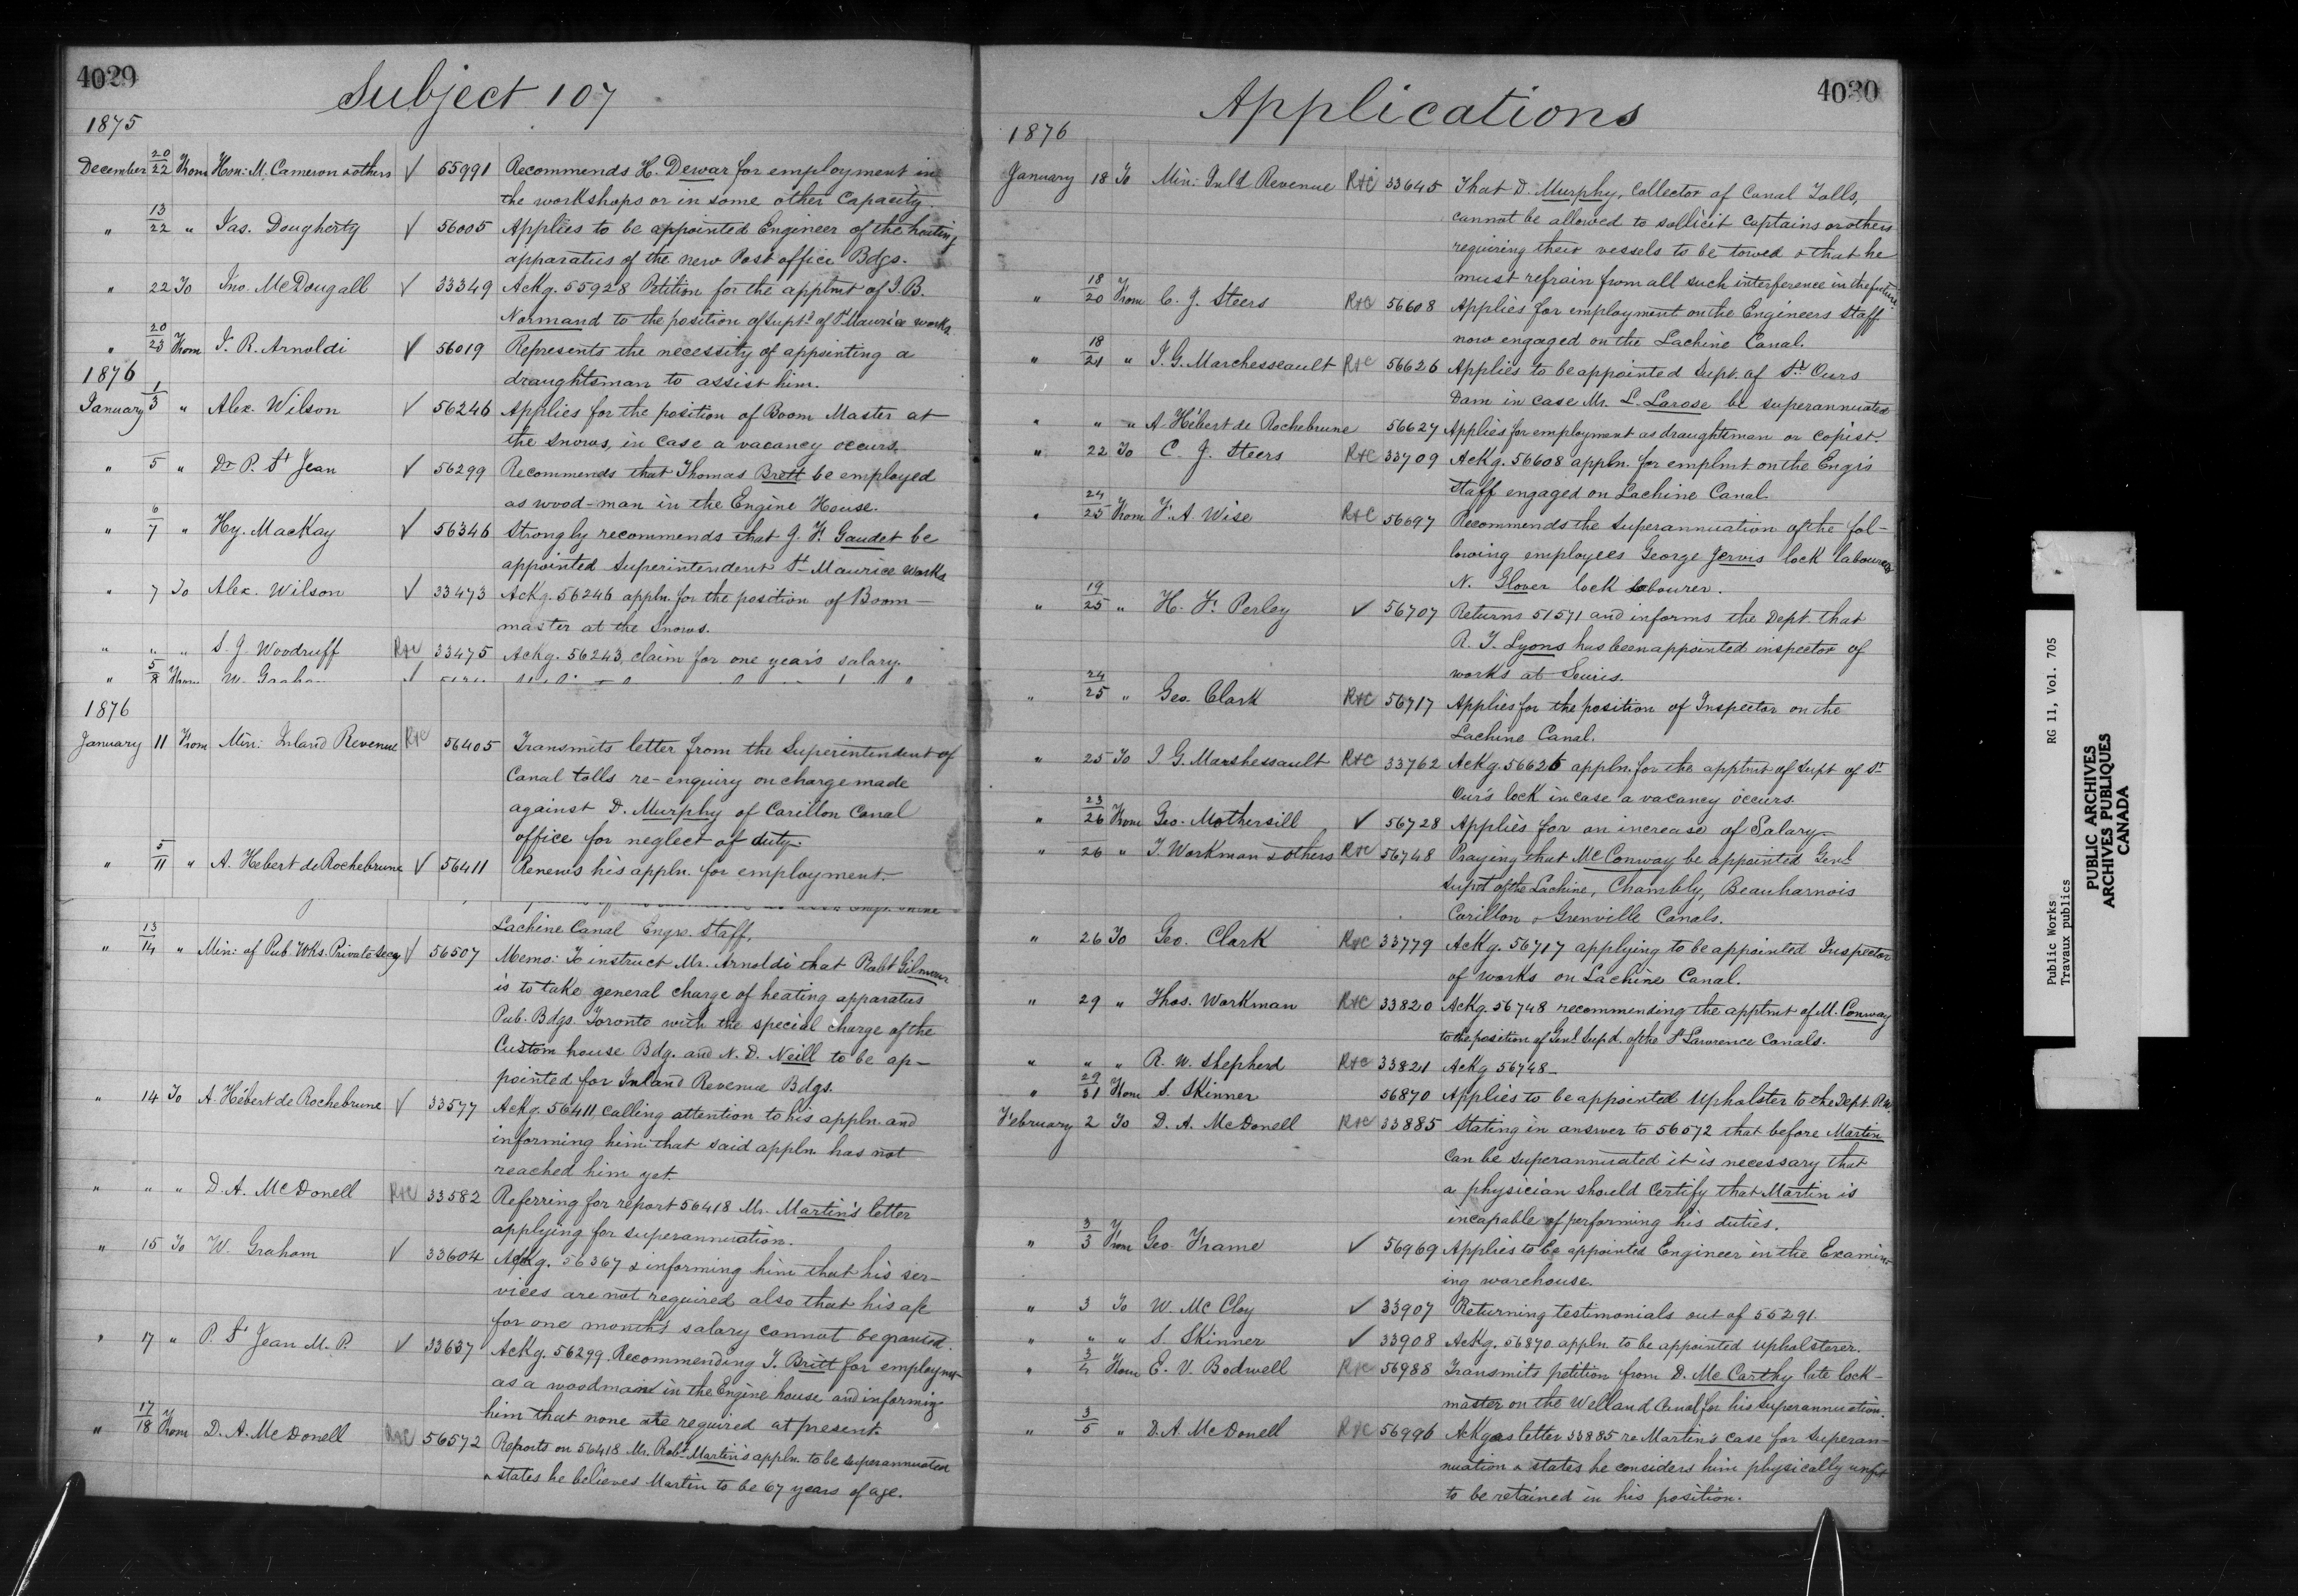 4029
Subject 107
1875
December 20/22 From Hon: M. Cameron & others √ 55991 Recommends H. Dewar for employment in
the workshops or in some other Capacity.
" 13/22 " Jas. Dougherty √ 56005 Applies to be appointed Engineer of the heating
apparatus of the new Post office Bdgs.
" 22 To Jno. McDougall √ 33349 Ackg. 55928 Petition for the apptmt of J. B.
Normand to the position of Supt. of St Maurice works
" 20/23 From J. R. Arnoldi √ 56019 Represents the necessity of appointing a
draughtsman to assist him.
1876
January 1/3 " Alex. Wilson √ 56246 Applies for the position of Boom Master at
the Snows, in case a vacancy occurs.
" 5 " Dr P. St Jean √ 56299 Recommends that Thomas Brett be employed
as wood-man in the Engine House.
" 6/7 " Hy. MacKay √ 56346 Strongly recommends that J. F. Gaudet be
appointed Superintendent St Maurice Works
" 7 To Alex. Wilson √ 33473 Ackg. 56246 appln. for the position of Boom-
master at the Snows.
" " " S. J. Woodruff R&C 33475 Ackg. 56243, claim for one year's salary.
" 5/8 From W. Graham √
1876
January 11 From Min: Inland Revenue R&C 56405 Transmits letter from the Superintendent of
Canal tolls re-enquiry on charge made
against D. Murphy of Carillon Canal
office for neglect of duty.
" 5/11 " A. Hebert de Rochebrune √ 56411 Renews his appln. for employment.
Lachine Canal Engrs. Staff.
" 13/14 " Min: of Pub Wks. Private Secy √ 56507 Memo: To instruct Mr. Arnoldi that Robt Gilmour
is to take general charge of heating apparatus
Pub. Bdgs. Toronto with the special charge of the
Custom house Bdg. and N. D. Neill to be ap-
pointed for Inland Revenue Bdgs.
" 14 To A. Hébert de Rochebrune √ 33577 Ackg. 56411, calling attention to his appln. and
informing him that said appln. has not
reached him yet.
" " " D. A. McDonell R&C 33582 Referring for report 56418 Mr. Martin's letter
applying for superannuation.
" 15 To W. Graham √ 33604 Ackg. 56367 & informing him that his ser-
vices are not required also that his
for one month's salary cannot be granted.
" 17 " P. St Jean M. P. √ 33637 Ackg. 56299. Recommending T. Britt for employmt
as a woodman in the Engine house and informing
him that none are required at present.
" 17/18 From D. A. McDonell R&C 56572 Reports on 56418 Mr. Robt Martin's appln. to be superannuated
& states he believes Martin to be 67 years of age.
Applications
4030
1876
January 18 To Min: Inld Revenue R&C 33645 That D. Murphy, Collector of Canal Tolls,
cannot be allowed to sollicit Captains or others
requiring their vessels to be towed & that he
must refrain from all such interference in the future
" 18/20 From C. J. Steers R&C 56608 Applies for employment on the Engineers Staff
now engaged on the Lachine Canal.
" 18/21 " J. G. Marchesseault R&C 56626 Applies to be appointed Supt. of St Ours
Dam in case Mr. L. Larose be superannuated
" " " A Hébert de Rochebrune 56627 Applies for employment as draughtsman or copist.
" 22 To C. J. Steers R&C 33709 Ackg. 56608 appln. for emplmt on the Engrs
Staff engaged on Lachine Canal.
" 24/25 From F. A. Wise R&C 56697 Recommends the superannuation of the fol-
lowing employees George Jervis lock labourer
N. Glover lock labourer.
" 19/25 " H. F. Perley √ 56707 Returns 51571 and informs the Dept. that
R. T. Lyons has been appointed inspector of
works at Souris.
" 24/25 " Geo. Clark R&C 56717 Applies for the position of Inspector on the
Lachine Canal.
" 25 To J G. Marshessault R&C 33762 Ackg. 56626 appln. for the apptmt of Supt of St
Our's lock in case a vacancy occurs.
" 23/26 From Geo. Mothersill √ 56728 Applies for an increase of Salary.
" 26 " T. Workman & others R&C 56748 Praying that McConway be appointed Genl
Supt of the Lachine, Chambly, Beauharnois
Carillon & Grenville Canals.
" 26 To Geo. Clark R&C 33779 Ackg. 56717 applying to be appointed Inspector
of works on Lachine Canal.
" 29 " Thos. Workman R&C 33820 Ackg. 56748 recommending the apptmt of M. Conway
to the position of Genl Supd. of the St Lawrence Canals.
" " " R. W. Shepherd R&C 33821 Ackg 56748-
" 29/31 From S. Skinner 56870 Applies to be appointed Upholster to the Dept. P.W.
February 2 To D. A. McDonell R&C 33885 Stating in answer to 56572 that before Martin
can be superannuated it is necessary that
a physician should certify that Martin is
incapable of performing his duties.
" 3/3 From Geo. Frame √ 56969 Applies to be appointed Engineer in the Examin-
ing warehouse.
" 3 To W. McCloy √ 33907 Returning testimonials out of 55291.
" " " S. Skinner √ 33908 Ackg. 56870 appln. to be appointed upholsterer.
" 3/4 From E. V. Bodwell R&C 56988 Transmits petition from D. McCarthy late lock-
master on the Welland Canal for his superannuation.
" 3/5 " D. A. McDonell R&C 56996 Ackges letter 33885 re Martin's case for superan-
nuation & states he considers him physically unfit
to be retained in his position.
Public Works RG 11, Vol. 705
Travaux publics
PUBLIC ARCHIVES
ARCHIVES PUBLIQUES
CANADA